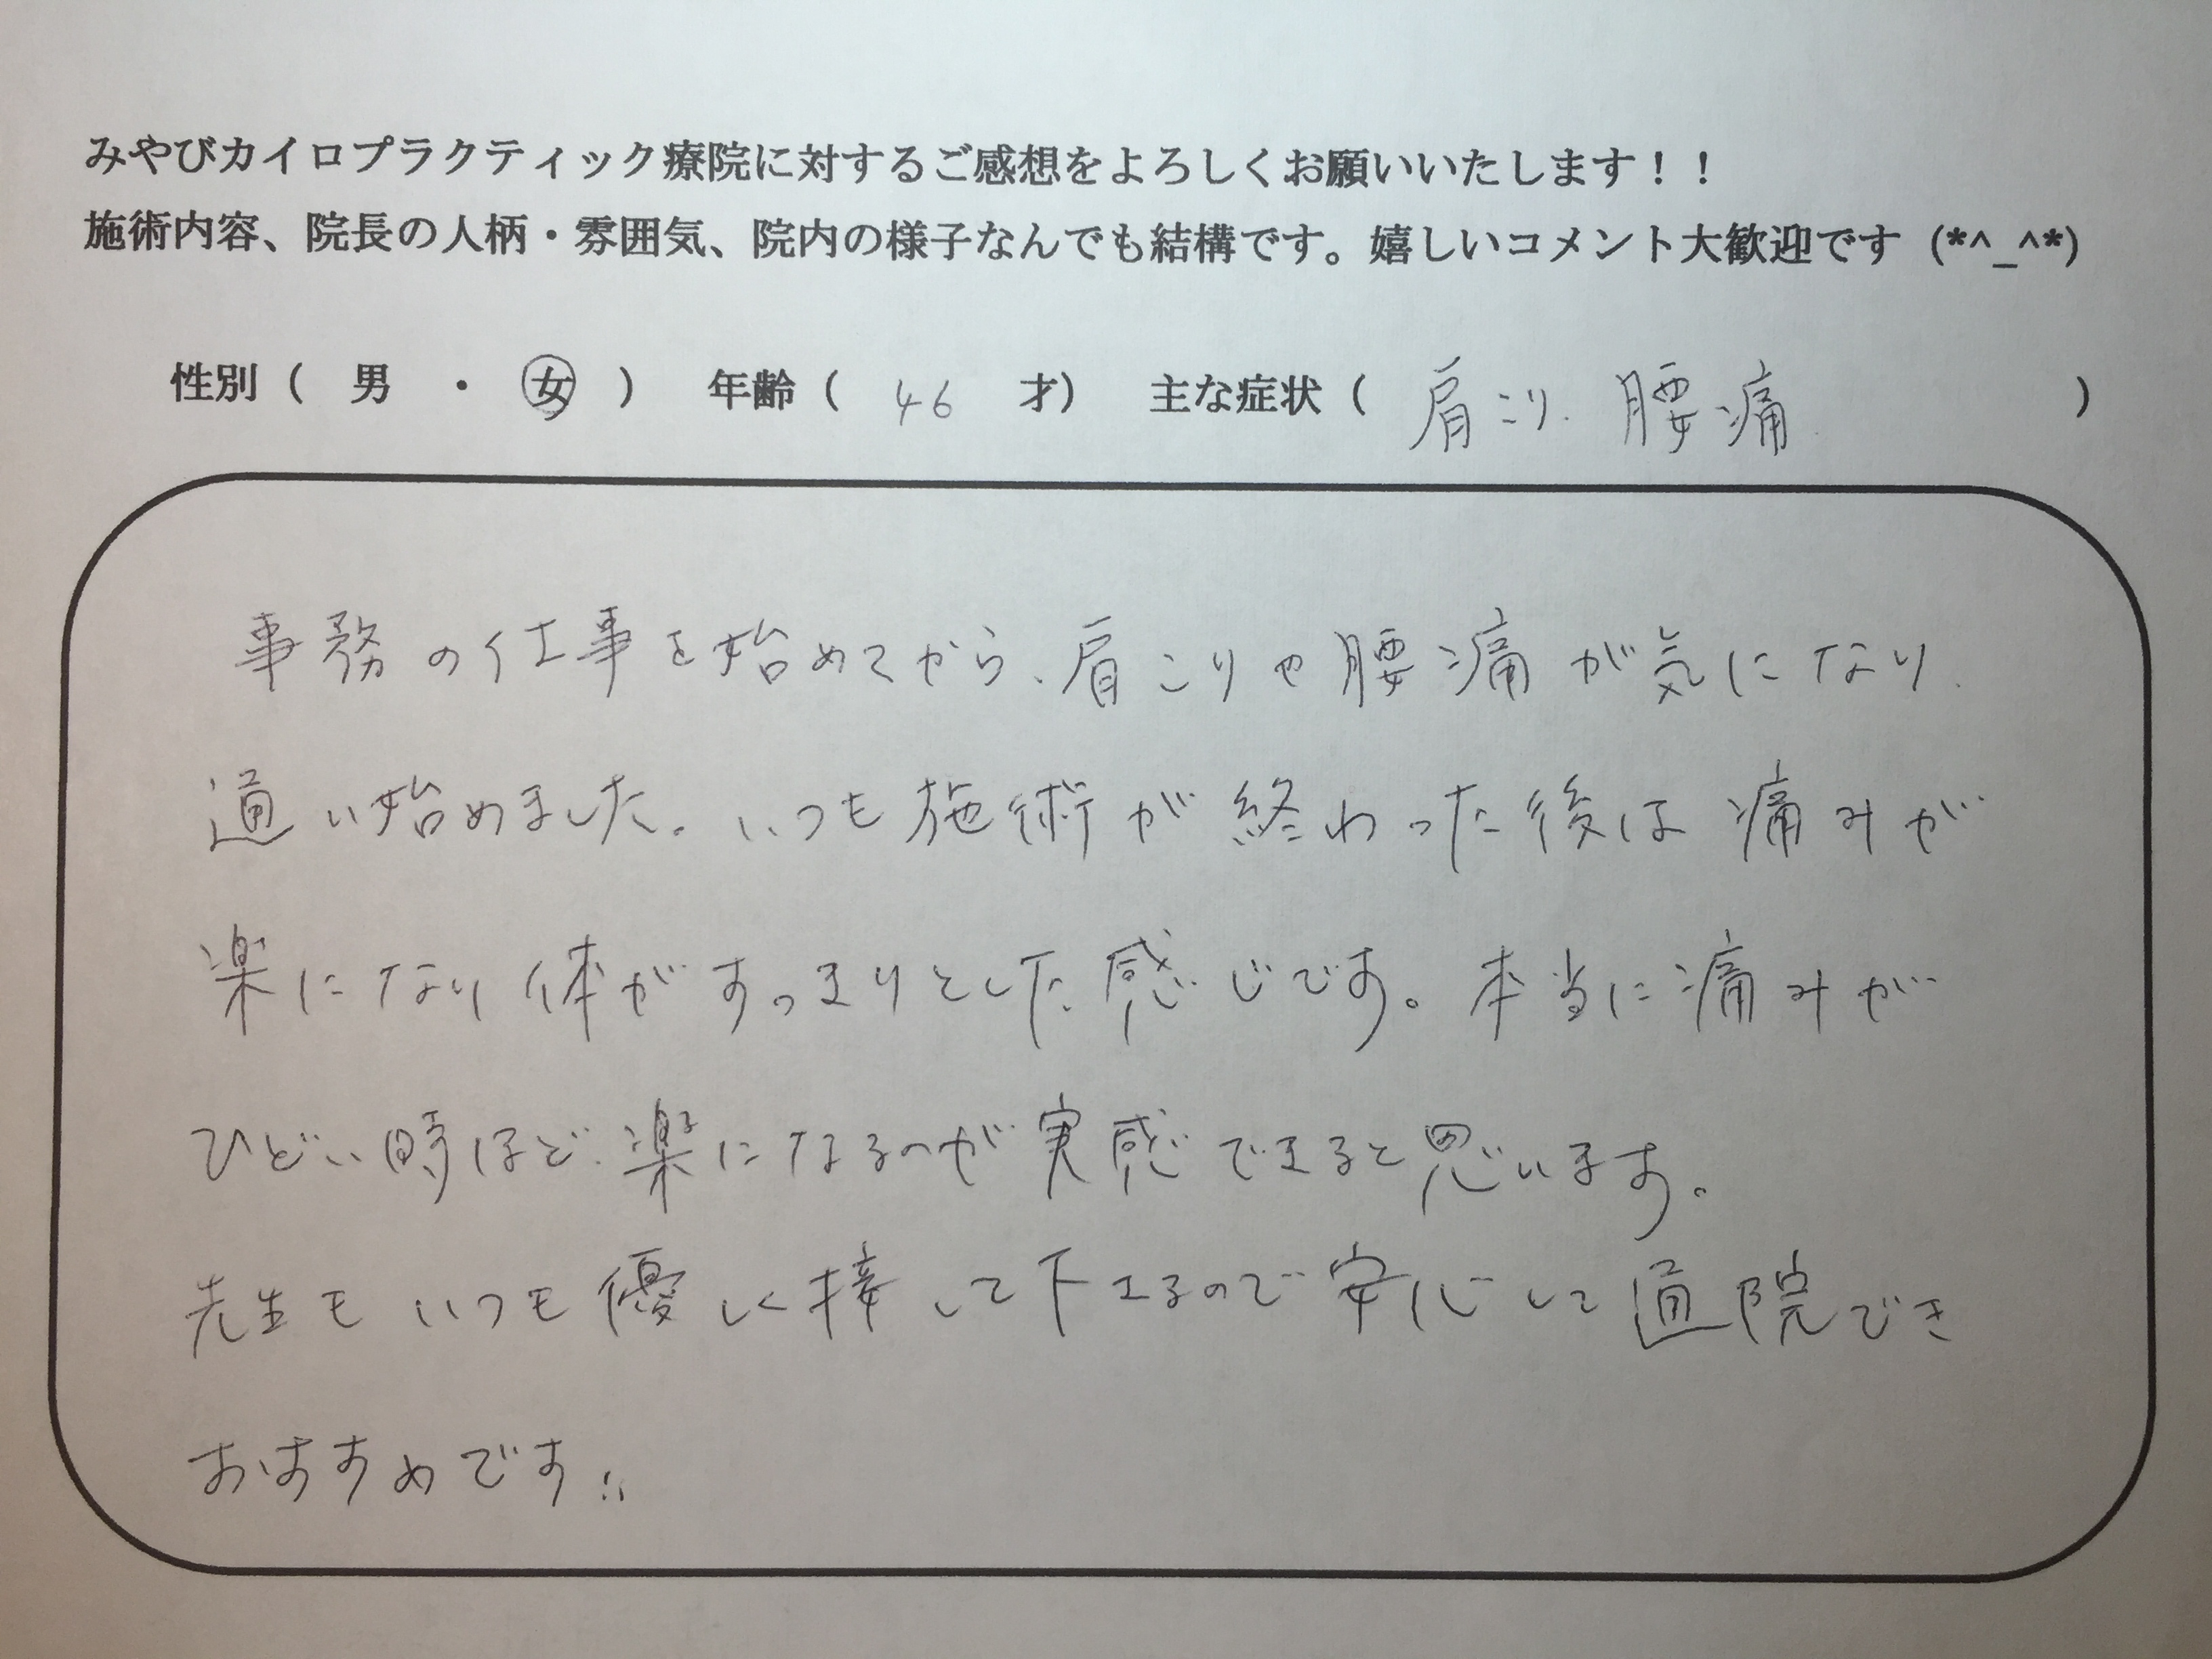 みやびカイロプラクティック療院に対するご感想をよろしくお願いいたします！！
施術内容、院長の人柄・雰囲気、院内の様子なんでも結構です。嬉しいコメント大歓迎です (*^_^*)
性別 （ 男 ・ 女 ） 年齢 （ 46 才） 主な症状 （ 肩こり. 腰痛 ）
事務の仕事を始めてから、肩こりや腰痛が気になり、
通い始めました。いつも施術が終わった後は痛みが
楽になり体がすっきりとした感じです。本当に痛みが
ひどい時ほど、楽になるのが実感できると思います。
先生もいつも優しく接して下さるので安心して通院でき
おすすめです!!